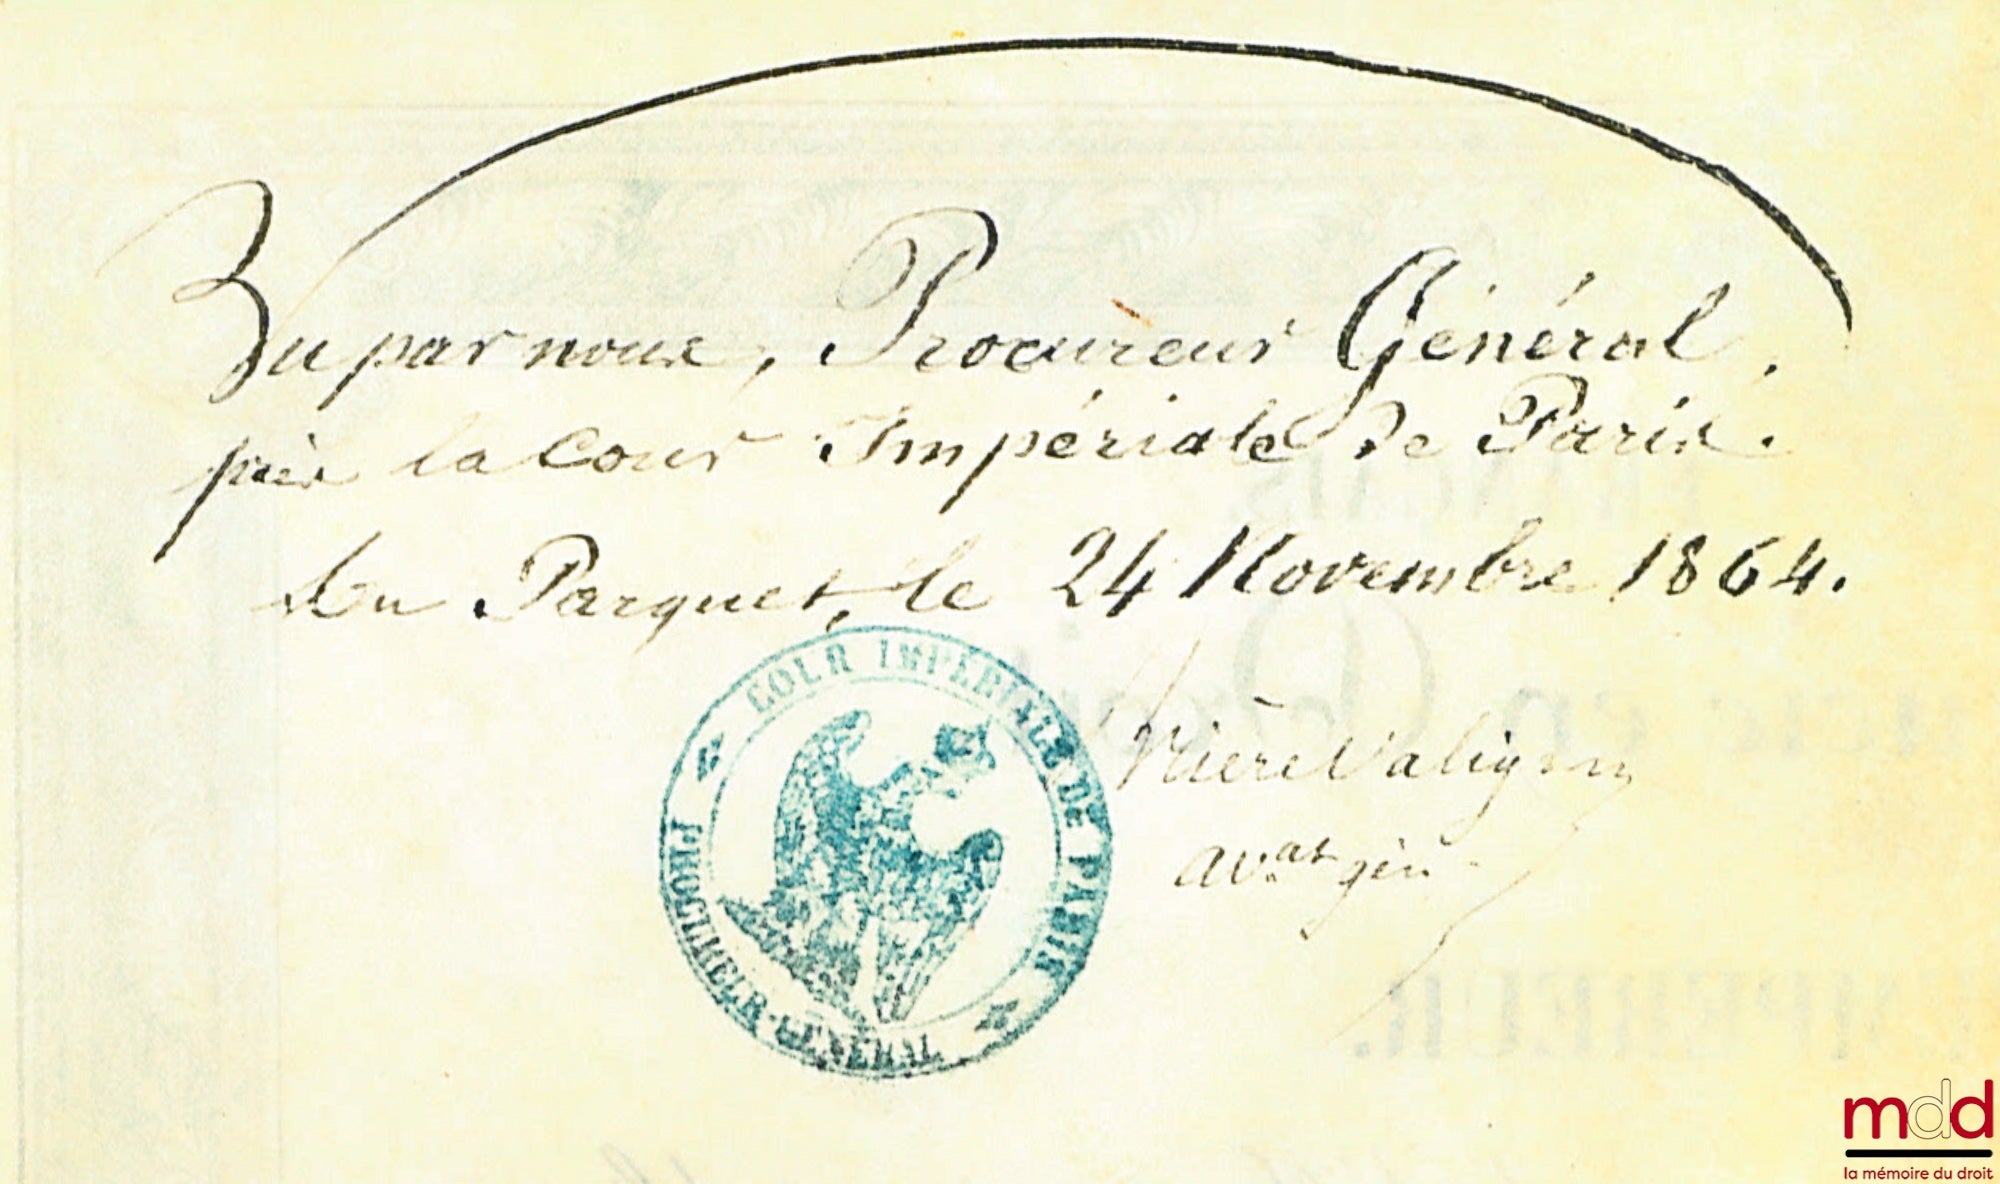 Vu par nous, Procureur Général,
près la Cour Impériale de Paris.
Au Parquet, le 24 Novembre 1864.
COUR IMPÉRIALE DE PARIS
PROCUREUR-GÉNÉRAL
av.at gén
mdd
la mémoire du droit